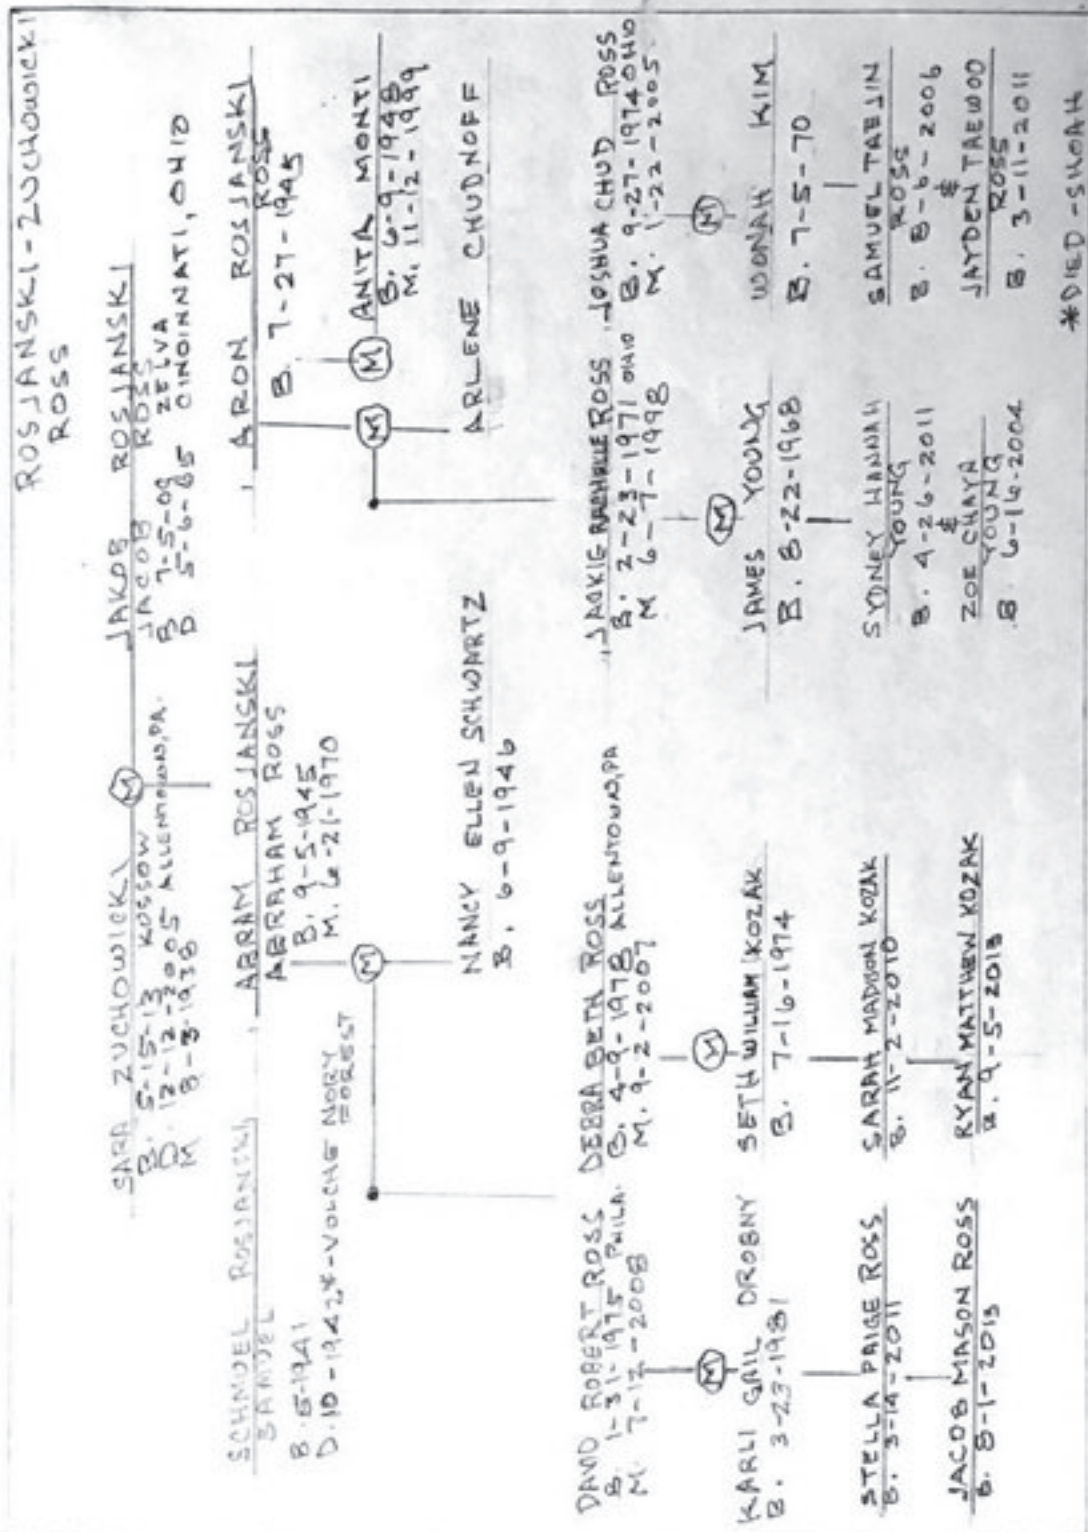 ROSJANSKI-ZUCHOWICKI
ROSS
SARA ZUCHOWICKI
B. 5-15-13 KOSSOW
D. 12-12-2005 ALLENTOWN, PA.
M 8-3-1938
M
JAKOB ROSJANSKI
JACOB ROSS
B 7-5-09 ZELVA
D 5-6-85 CINCINNATI, OHIO
SCHMUEL ROSJANSKI
SAMUEL
B. 5-1941
D. 10-1942*-VOLCHE NORY
FOREST
ABRAM ROSJANSKI
ABRAHAM ROSS
B. 9-5-1945
M. 6-21-1970
M
NANCY ELLEN SCHWARTZ
B. 6-9-1946
ARON ROSJANSKI
ROSS
B. 7-27-1945
M
M
ANITA MONTI
B. 6-9-1948
M. 11-12-1999
ARLENE CHUDNOFF
DAVID ROBERT ROSS
B. 1-31-1975 PHILA.
M. 7-12-2008
M
KARLI GAIL DROBNY
B. 3-23-1981
STELLA PAIGE ROSS
B. 3-14-2011
JACOB MASON ROSS
B. 8-1-2013
DEBRA BETH ROSS
B. 4-9-1978 ALLENTOWN, PA
M. 9-2-2007
M
SETH WILLIAM KOZAK
B. 7-16-1974
SARAH MADISON KOZAK
B. 11-2-2010
RYAN MATTHEW KOZAK
B. 9-5-2013
ROSS
B. 2-23-1971 OHIO
M 6-7-1998
M
JAMES YOUNG
B. 8-22-1968
SYDNEY HANNAH
YOUNG
B. 4-26-2011
&
ZOE CHAYA
YOUNG
B. 6-16-2004
JOSHUA CHUD ROSS
B. 9-27-1974 OHIO
M. 1-22-2005
M
WOONAH KIM
B. 7-5-70
SAMUEL TAEJIN
ROSS
B. 8-6-2006
&
JAYDEN TAEWOO
ROSS
B. 3-11-2011
*DIED-SHOAH